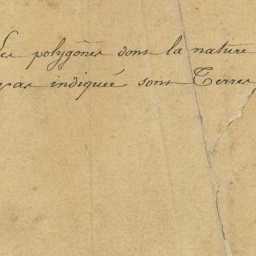 Les polygones dont la nature
pas indiquée sont Terres